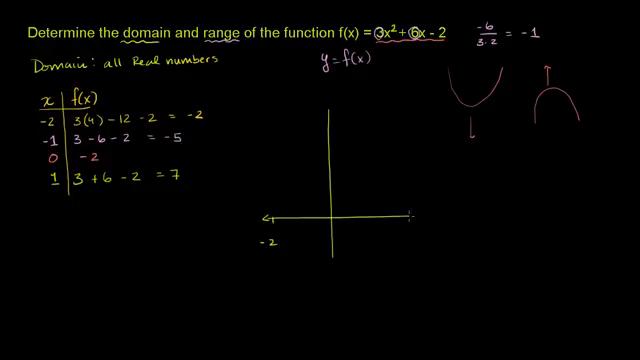 Determine the domain and range of the function f(x) = 3x² + 6x - 2
-6 / 3·2 = -1
Domain: all Real numbers
y = f(x)
x f(x)
-2 3(4) - 12 - 2 = -2
-1 3 - 6 - 2 = -5
0 -2
1 3 + 6 - 2 = 7
-2